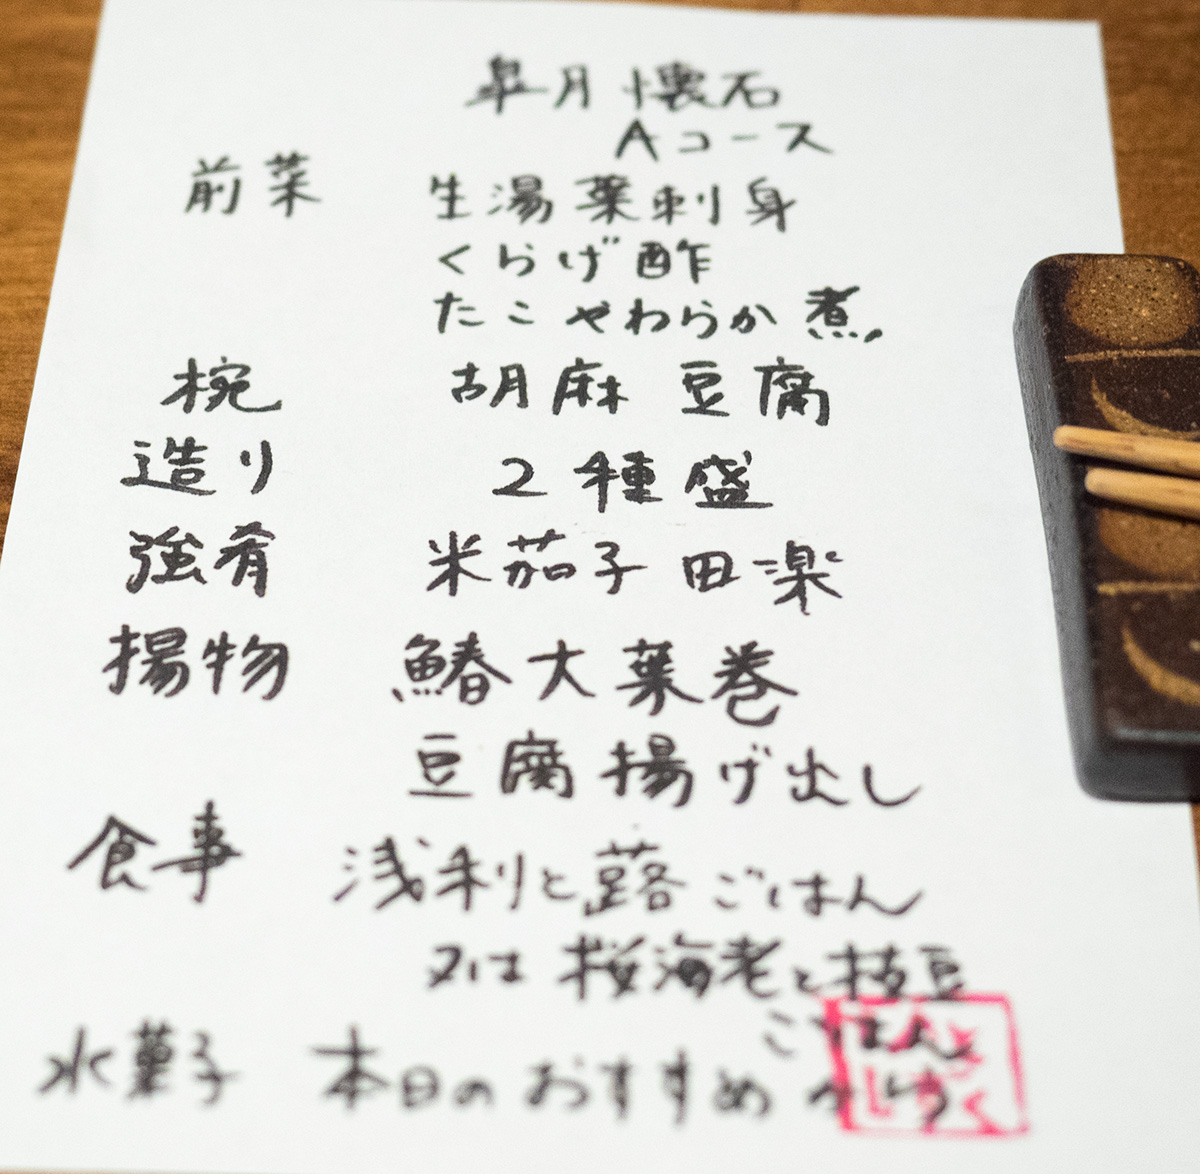 皐月懐石
Aコース
前菜 生湯葉刺身
くらげ酢
たこやわらか煮
椀 胡麻豆腐
造り 2種盛
強肴 米茄子田楽
揚物 鰆大葉巻
豆腐揚げ出し
食事 浅利と蕗ごはん
又は 桜海老と枝豆
ごはん
水菓子 本日のおすすめ